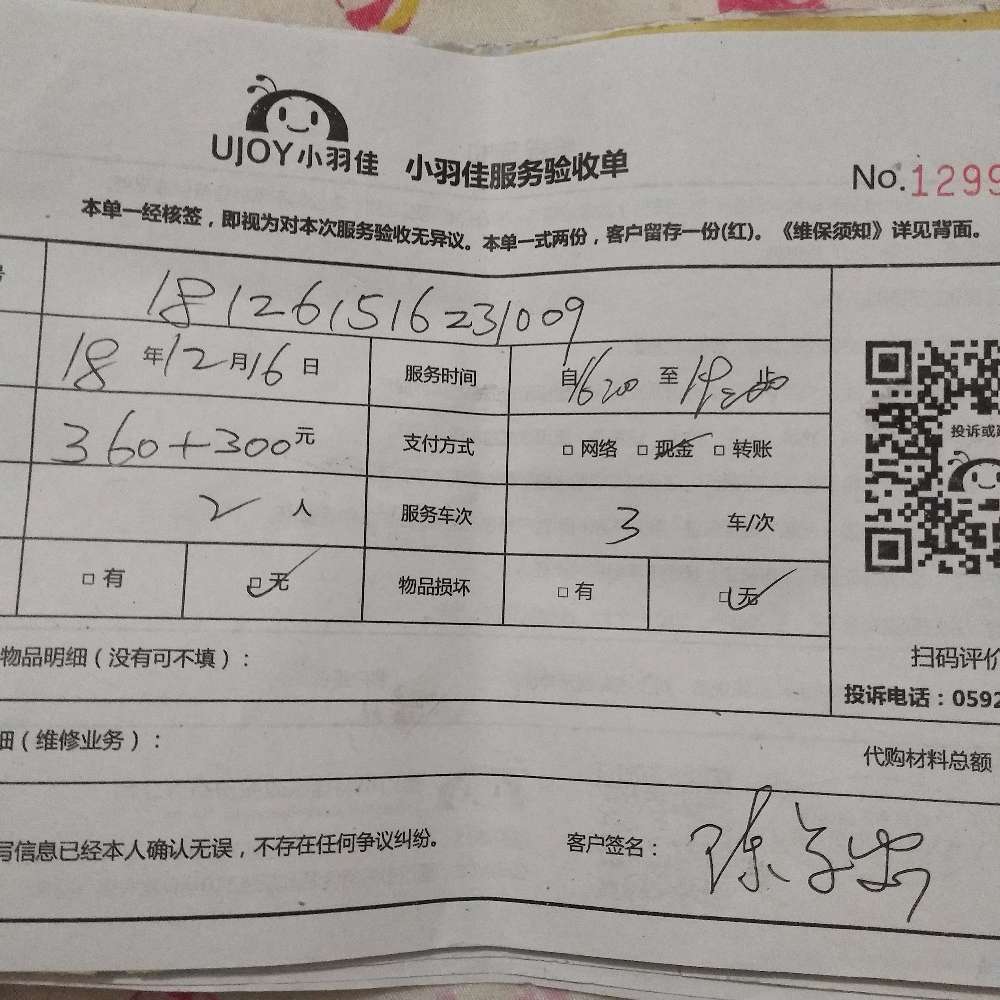 UJOY小羽佳 小羽佳服务验收单
No.1299
本单一经核签，即视为对本次服务验收无异议。本单一式两份，客户留存一份(红)。《维保须知》详见背面。
号 181261516231009
18年12月16日 服务时间 自1620 至
360+300元 支付方式 □ 网络 □ 现金 □ 转账
2 人 服务车次 3 车/次
□ 有 □ 无 物品损坏 □ 有 □ 无
投诉或
扫码评价
投诉电话：0592
物品明细（没有可不填）：
细（维修业务）：
代购材料总额
写信息已经本人确认无误，不存在任何争议纠纷。 客户签名：陈